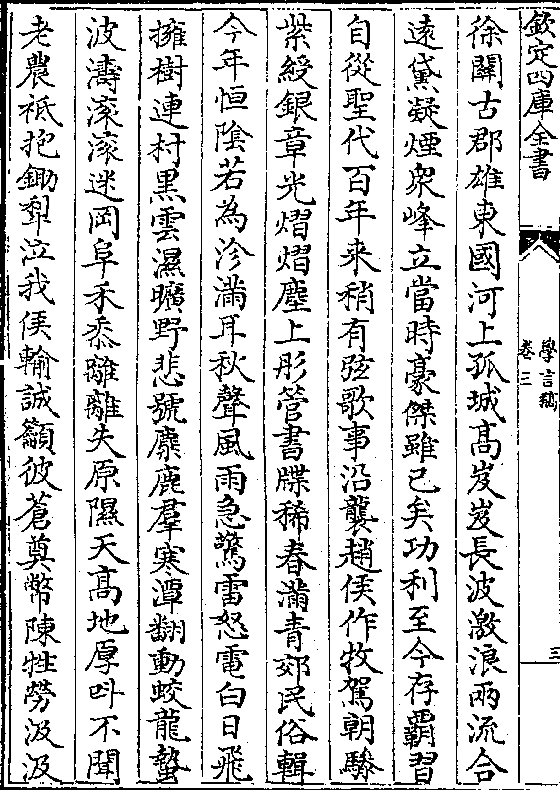 欽定四庫全書
學言稿
卷三
三
徐關古郡雄東國河上孤城高岌岌長波激浪兩流合
遠黛凝煙衆峰立當時豪傑雖已矣功利至今存霸習
自從聖代百年來稍有弦歌事沿襲趙侯作牧駕朝驂
紫綬銀章光熠熠塵上彤管書牒稀春滿青郊民俗輯
今年恒陰若為沴滿耳秋聲風雨急驚雷怒電白日飛
擁樹連村黑雲濕曠野悲號麋鹿羣寒潭翻動蛟龍蟄
波濤滚滚迷岡阜禾黍離離失原隰天高地厚叫不聞
老農秪抱鋤犁泣我侯輸誠籲彼蒼奠幣陳牲勞汲汲